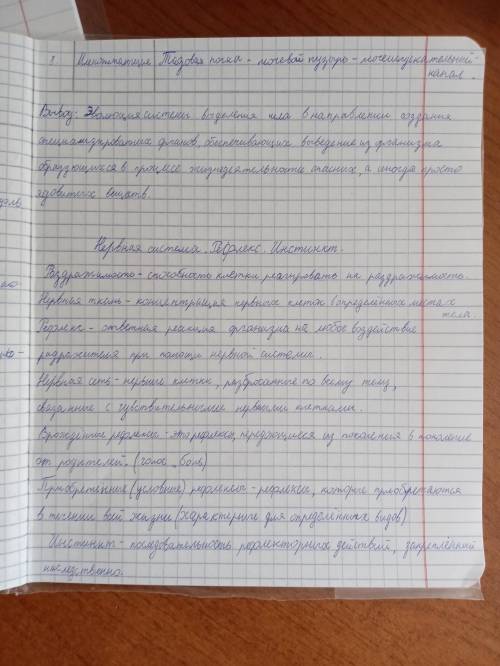 8 Млекопитающие Тазовая почка - мочевой пузырь - мочеиспускательный
канал.
Вывод: Эволюция системы выделения шла в направлении создания
специализированных органов, обеспечивающих выведение из организма
образующихся в процессе жизнедеятельности опасных, а иногда просто
ядовитых веществ.
Нервная система. Рефлекс. Инстинкт.
Раздражимость - способность клетки реагировать на раздражимость.
Нервная ткань - концентрация нервных клеток в определённых местах
тела
Рефлекс - ответная реакция организма на любое воздействие
раздражителя при помощи нервной системы.
Нервная сеть - нервные клетки, разбросанные по всему телу,
связанные с чувствительными нервными клетками.
Врождённые рефлексы - это рефлексы, передающиеся из поколения в поколение
от родителей. (голос, боль)
Приобретенные (условные) рефлексы - рефлексы, которые приобретаются
в течении всей жизни (характерные для определённых видов)
Инстинкт - последовательность рефлекторных действий, закреплённый
наследственно.